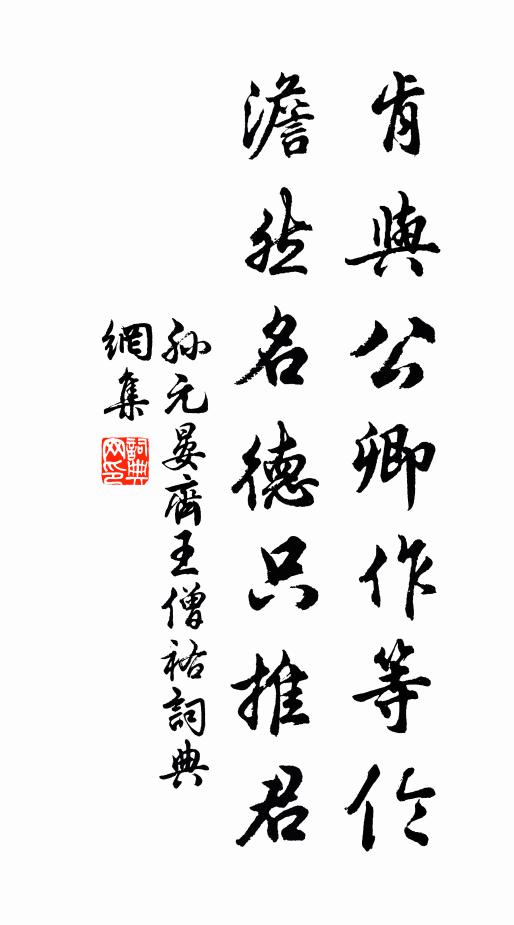 肯與公卿作等伦
澹然名德只推君
孙元晏齊王僧祐詞典
網集
詞典
网印